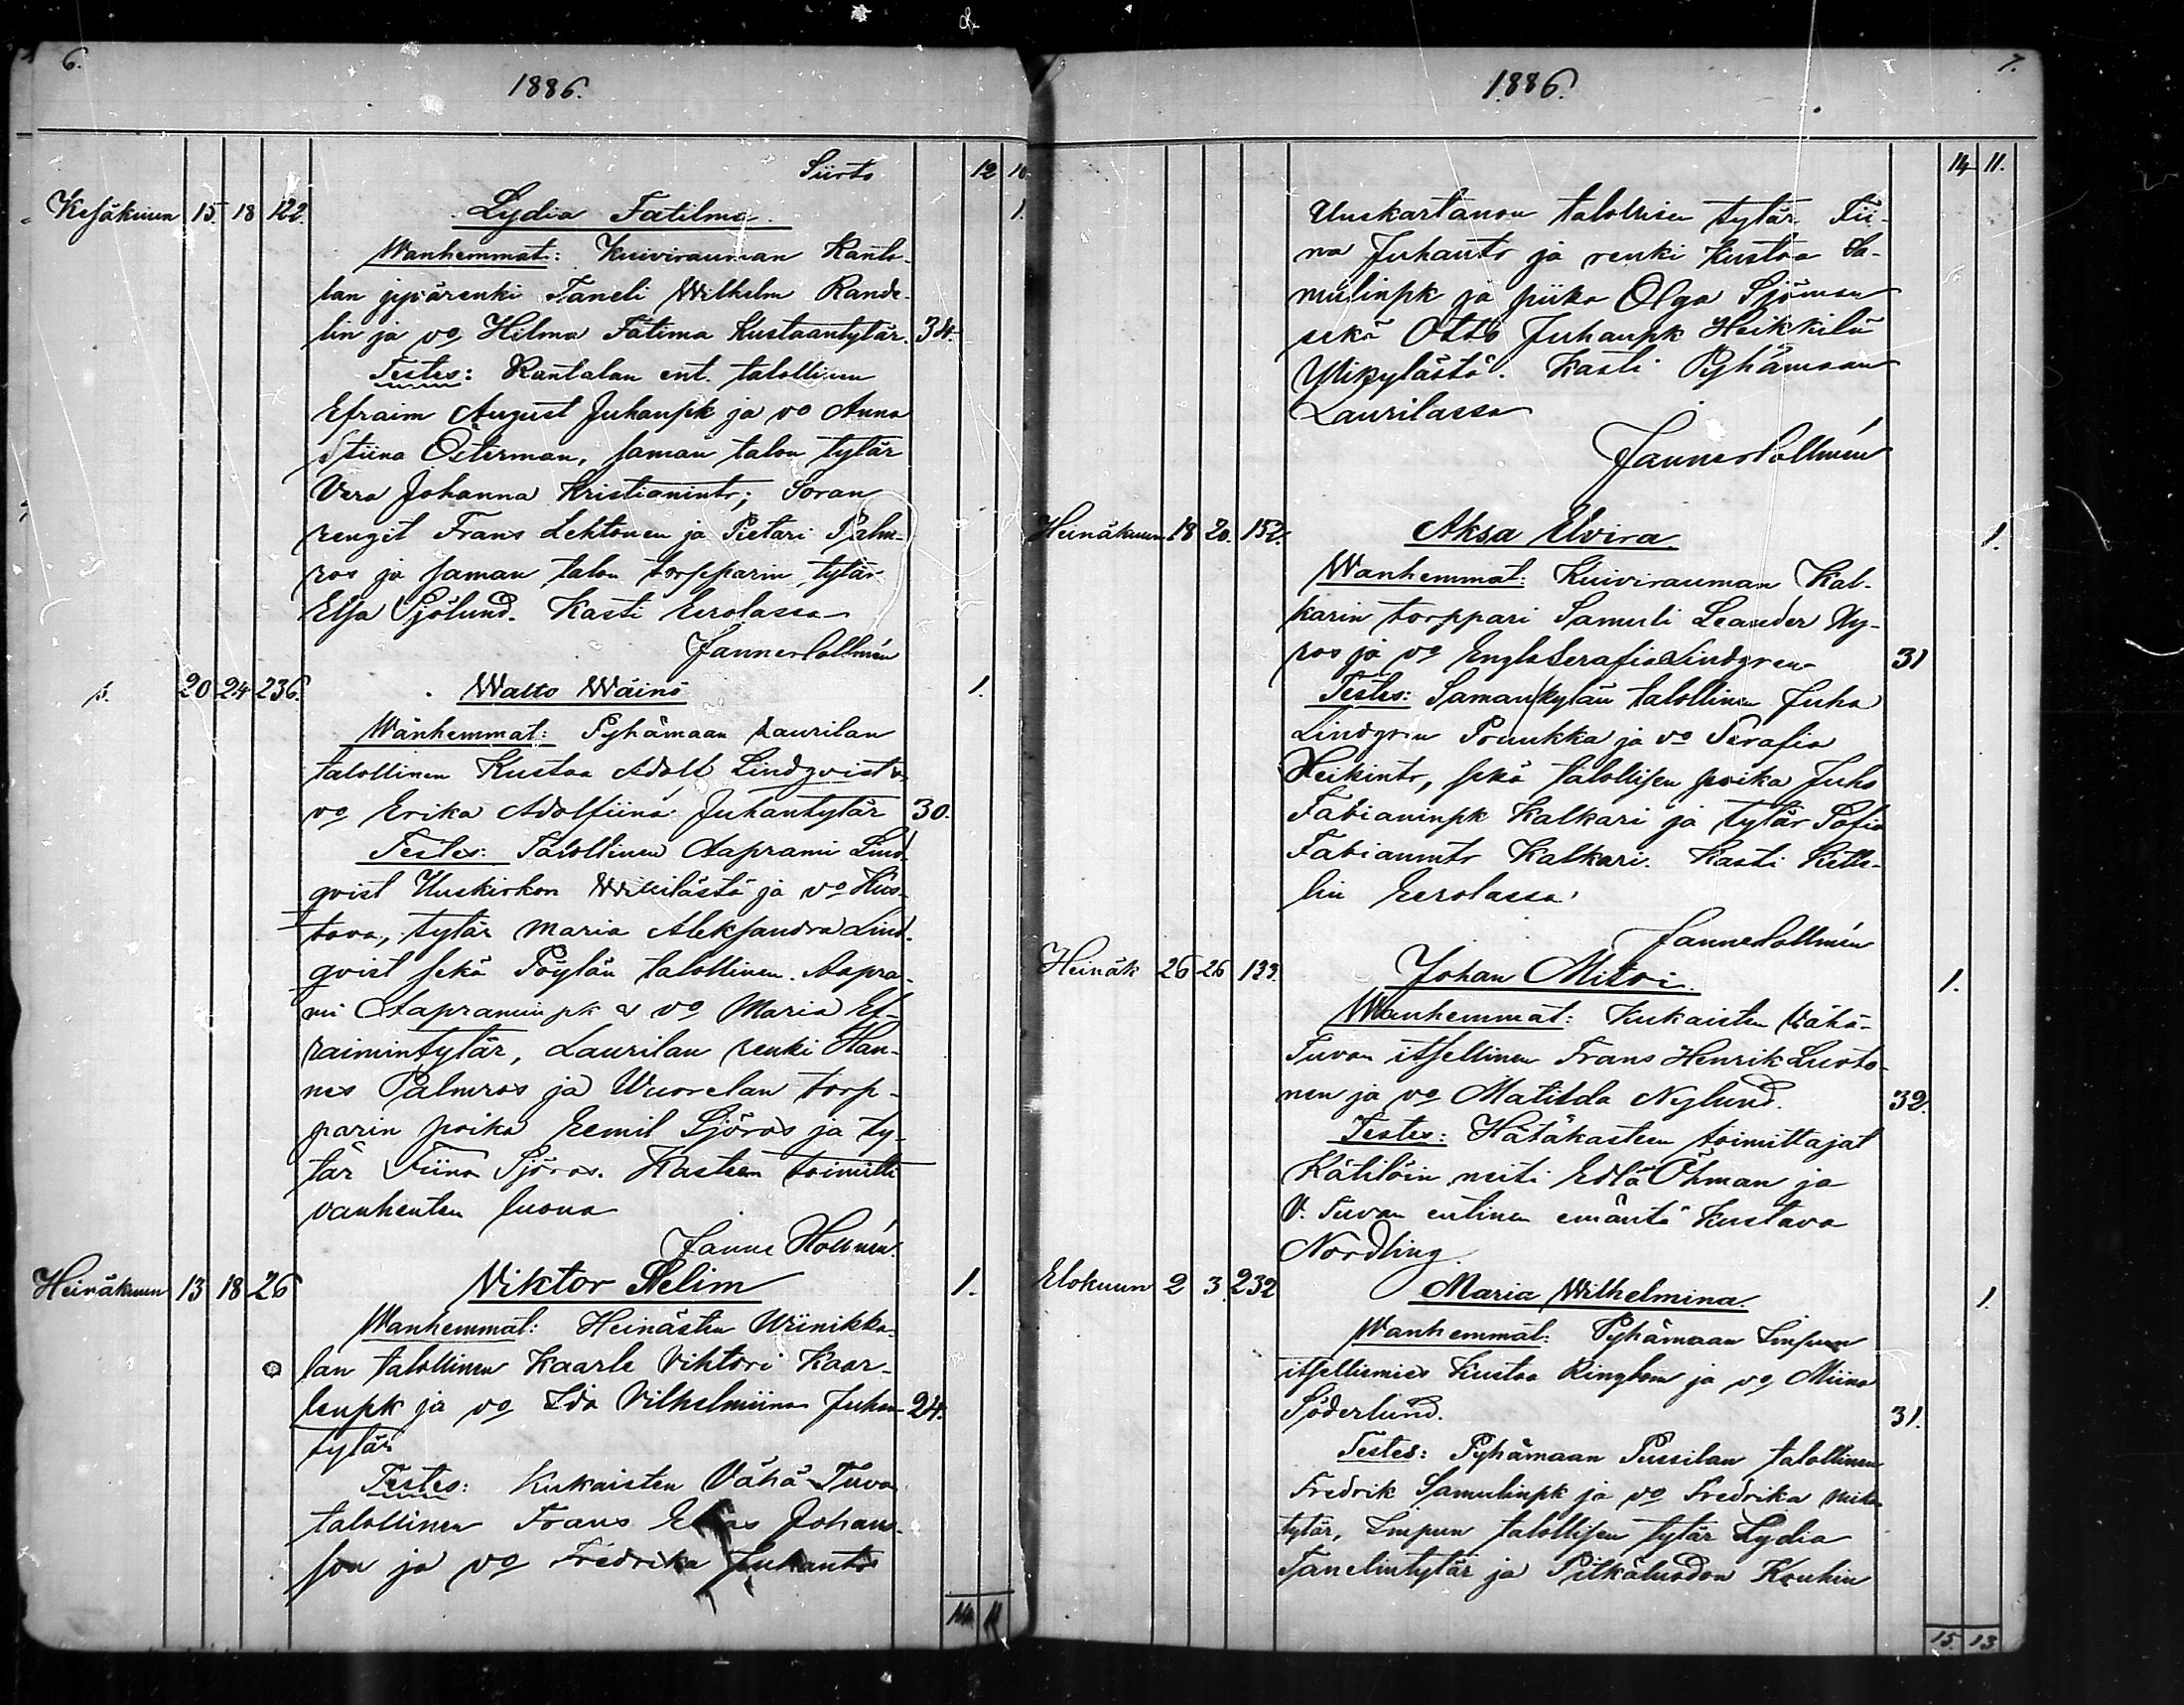 6.
1886.
Siirto 12 10.
Kesäkuun 15. 18 122. Lydia Fatilma. 1.
Wanhemmat: Kuivirauman Ranta-
lan jyvärenki Taneli Wilhelm Rande-
lin ja vo Hilma Fatima Kustaantytär. 34.
Testes: Rantalan ent. talollinen
Efraim August Juhanpk ja vo Anna
Stiina Österman, saman talon tytär
Vera Johanna Kristianintr; Soran
rengit Frans Lehtonen ja Pietari Palm-
ros ja saman talon torpparin tytär
Elsa Sjölund. Kasti Eerolassa
Janne Hollmén
s. 20 24 236. Walto Wäinö 1.
Wanhemmat: Pyhämaan Laurilan
talollinen Kustaa Adolf Lindqvist
vo Erika Adolfiina Juhantytär 30.
Testes: Talollinen Aaprami Lind-
qvist Uuskirkon ja vo Kus-
tava, tytär Maria Aleksandra Lind-
qvist sekä Pöylän talollinen Aapra-
mi Aapraminpk & vo Maria Ef-
raimintytär, Laurilan renki Han-
nes Palmros ja Wuorelan torp-
parin poika Eemil Sjöros ja ty-
tär Fiina Sjöros. Kasteen toimitti
vanhenten luona
Janne Hollmén.
Heinäkuun 13 18 26 Viktor Selim 1.
Wanhemmat: Heinästen Wiinikka-
lan talollinen Kaarle Vihtori Kaar-
lenpk ja vo Ida Vilhelmiina Juhan- 24.
tytär
Testes: Kukaisten Vähä-Tuvan
talollinen Frans Johans-
son ja vo Fredrika Juhantr
14 11
7.
1886.
14 11.
Uuskartanon talollisen tytär Fii-
na Juhantr ja renki Kustaa Sa-
mulinpk ja piika Olga Sjöman
sekä Otto Juhanpk Heikkilä
Ylikylästä. Kasti Pyhämaan
Laurilassa
Janne Hollmén
Heinäkuun 18 20. 152. Aksa Elvira. 1.
Wanhemmat: Kuivirauman Kal-
karin torppari Samuli Leander Ny-
ros ja vo Engla Serafia Lindgren 31
Testes: Saman kylän talollinen Juha
Lindgren Prunkka ja vo Serafia
Heikintr, sekä talollisen poika Juho
Fabianinpk Kalkari ja tytär Sofia
Fabianintr Kalkari. Kasti Kette-
lin Eerolassa.
Janne Hollmén
Heinäk 26 26 133. Johan Mitri. 1.
Wanhemmat: Kukaisten Vähä-
Tuvan itsellinen Frans Henrik Luoto-
nen ja vo Matilda Nylund. 32.
Testes: Hätäkasteen toimittajat
Kätilöin neiti Edla Öhman ja
V. Tuvan entinen emäntä Kustava
Nordling.
Elokuun 2 3. 232 Maria Wilhelmina. 1.
Wanhemmat: Pyhämaan Impun
itsellismies Kustaa Ringbom ja vo Miina
Söderlund. 31.
Testes: Pyhämaan Pussilan talollinen
Fredrik Samulinpk ja vo Fredrika
tytär, Impun talollisen tytär Lydia
Tanelintytär ja Pitkäluodon Kouhin
15. 13